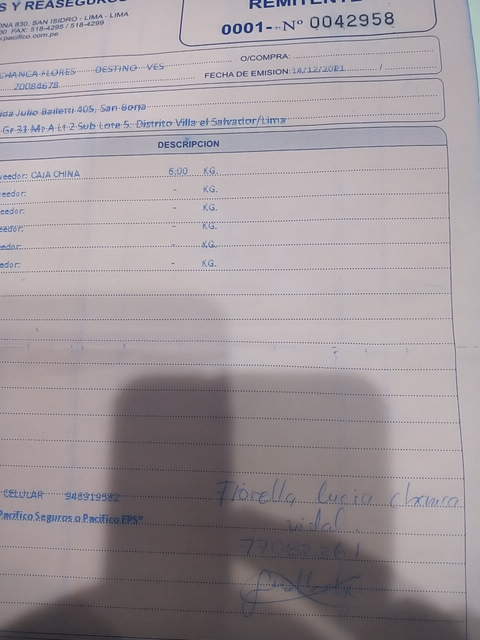 S Y REASEGUROS
ONA 830, SAN ISIDRO - LIMA - LIMA
00 FAX: 518-4295 / 518-4299
.pacifico.com.pe
REMITENTE
0001- Nº 0042958
CHANCA FLORES DESTINO VES
20084678
O/COMPRA:
FECHA DE EMISION: 14/12/2021 /
ida Julio Bailetti 405, San Borja
Gr 31 Mz A Lt 2 Sub Lote 5. Distrito Villa el Salvador/Lima
DESCRIPCION
eedor: CAJA CHINA 6,00 KG.
eedor: - KG.
eedor: - KG.
eedor: - KG.
edor: - KG.
edor: - KG.
CELULAR 948919582
Pacífico Seguros o Pacífico EPS"
Fiorella Lucia chanca
vidal.